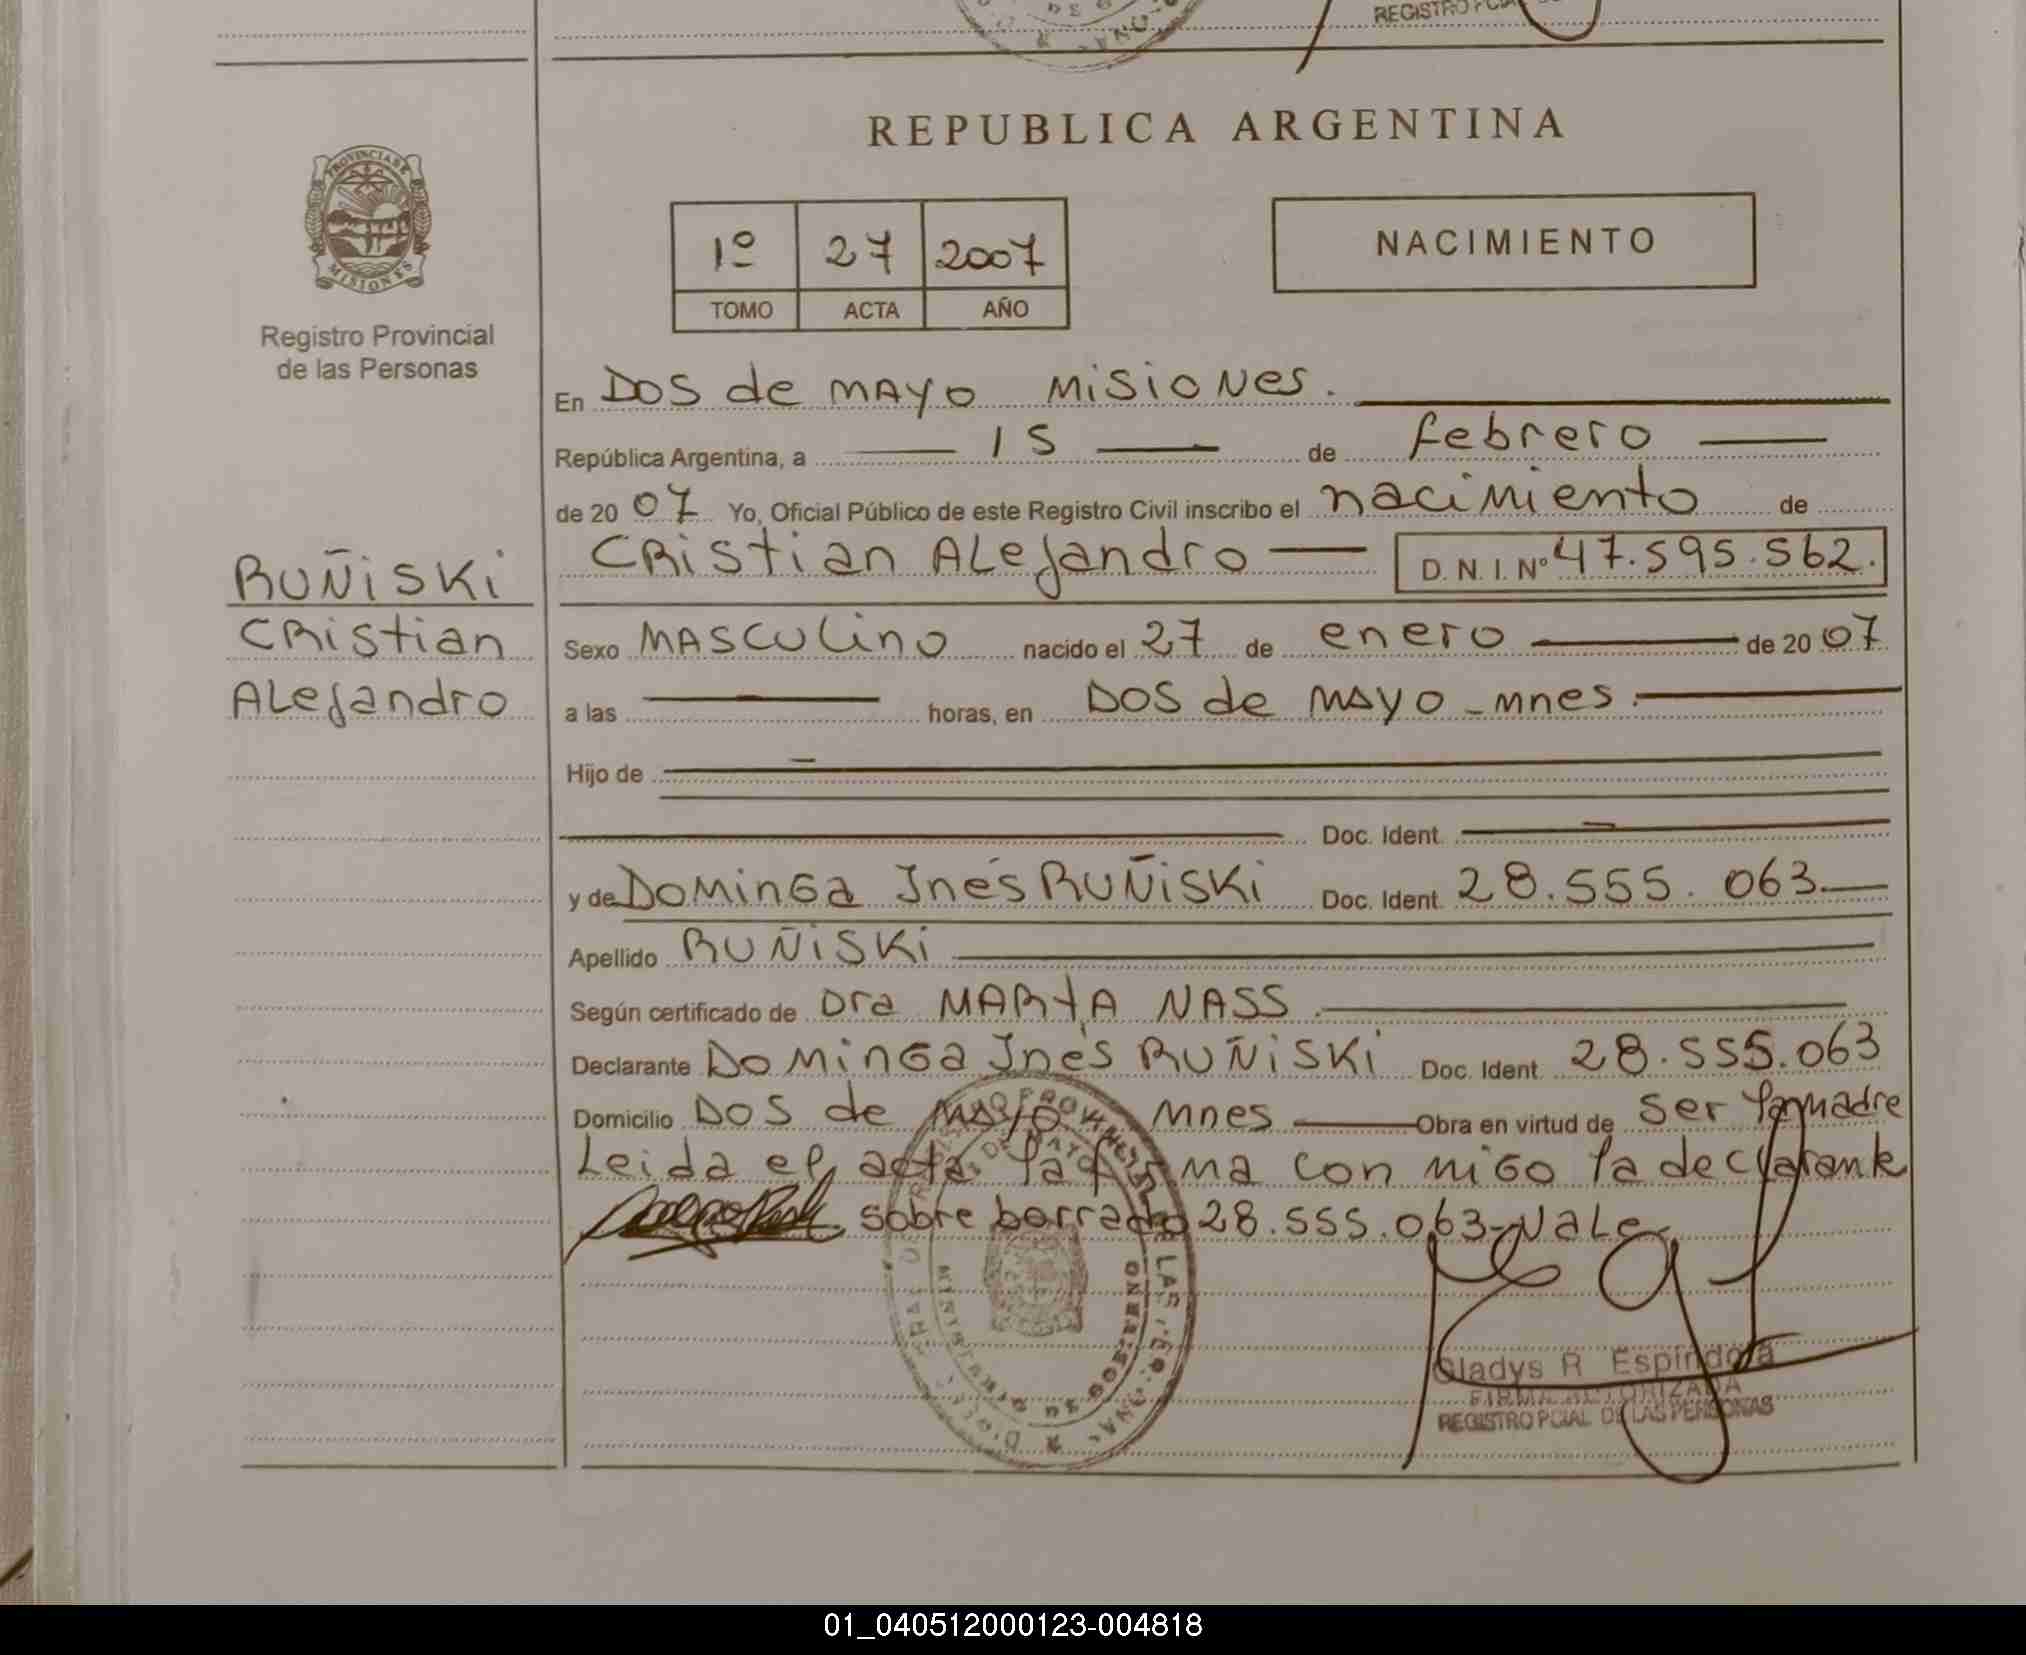 REGISTRO PCIAL
REPUBLICA ARGENTINA
PROVINCIA DE
MISIONES
Registro Provincial
de las Personas
1º 27 2007
TOMO ACTA AÑO
NACIMIENTO
En DOS de MAYO MISIONES.
República Argentina, a 15 de febrero
de 2007 Yo, Oficial Público de este Registro Civil inscribo el nacimiento de
RUÑISKI
CRistian ALejandro D. N. I. Nº 47.595.562.
CRistian
Sexo MASCULINO nacido el 27 de enero de 2007
ALejandro
a las horas, en DOS de MAYO - mnes.
Hijo de
Doc. Ident.
y de DOMINGA Inés RUÑISKI Doc. Ident. 28.555.063
Apellido RUÑISKI
Según certificado de Dra MARTA NASS
Declarante DOMINGA Inés RUÑISKI Doc. Ident. 28.555.063
Domicilio DOS de MAYO mnes Obra en virtud de ser la madre
Leida el acta la firma con migo la declarante
sobre borrado 28.555.063-Vale
MINISTERIO DE GOBIERNO
Gladys R Espindola
FIRMA AUTORIZADA
REGISTRO PCIAL DE LAS PERSONAS
01_040512000123-004818